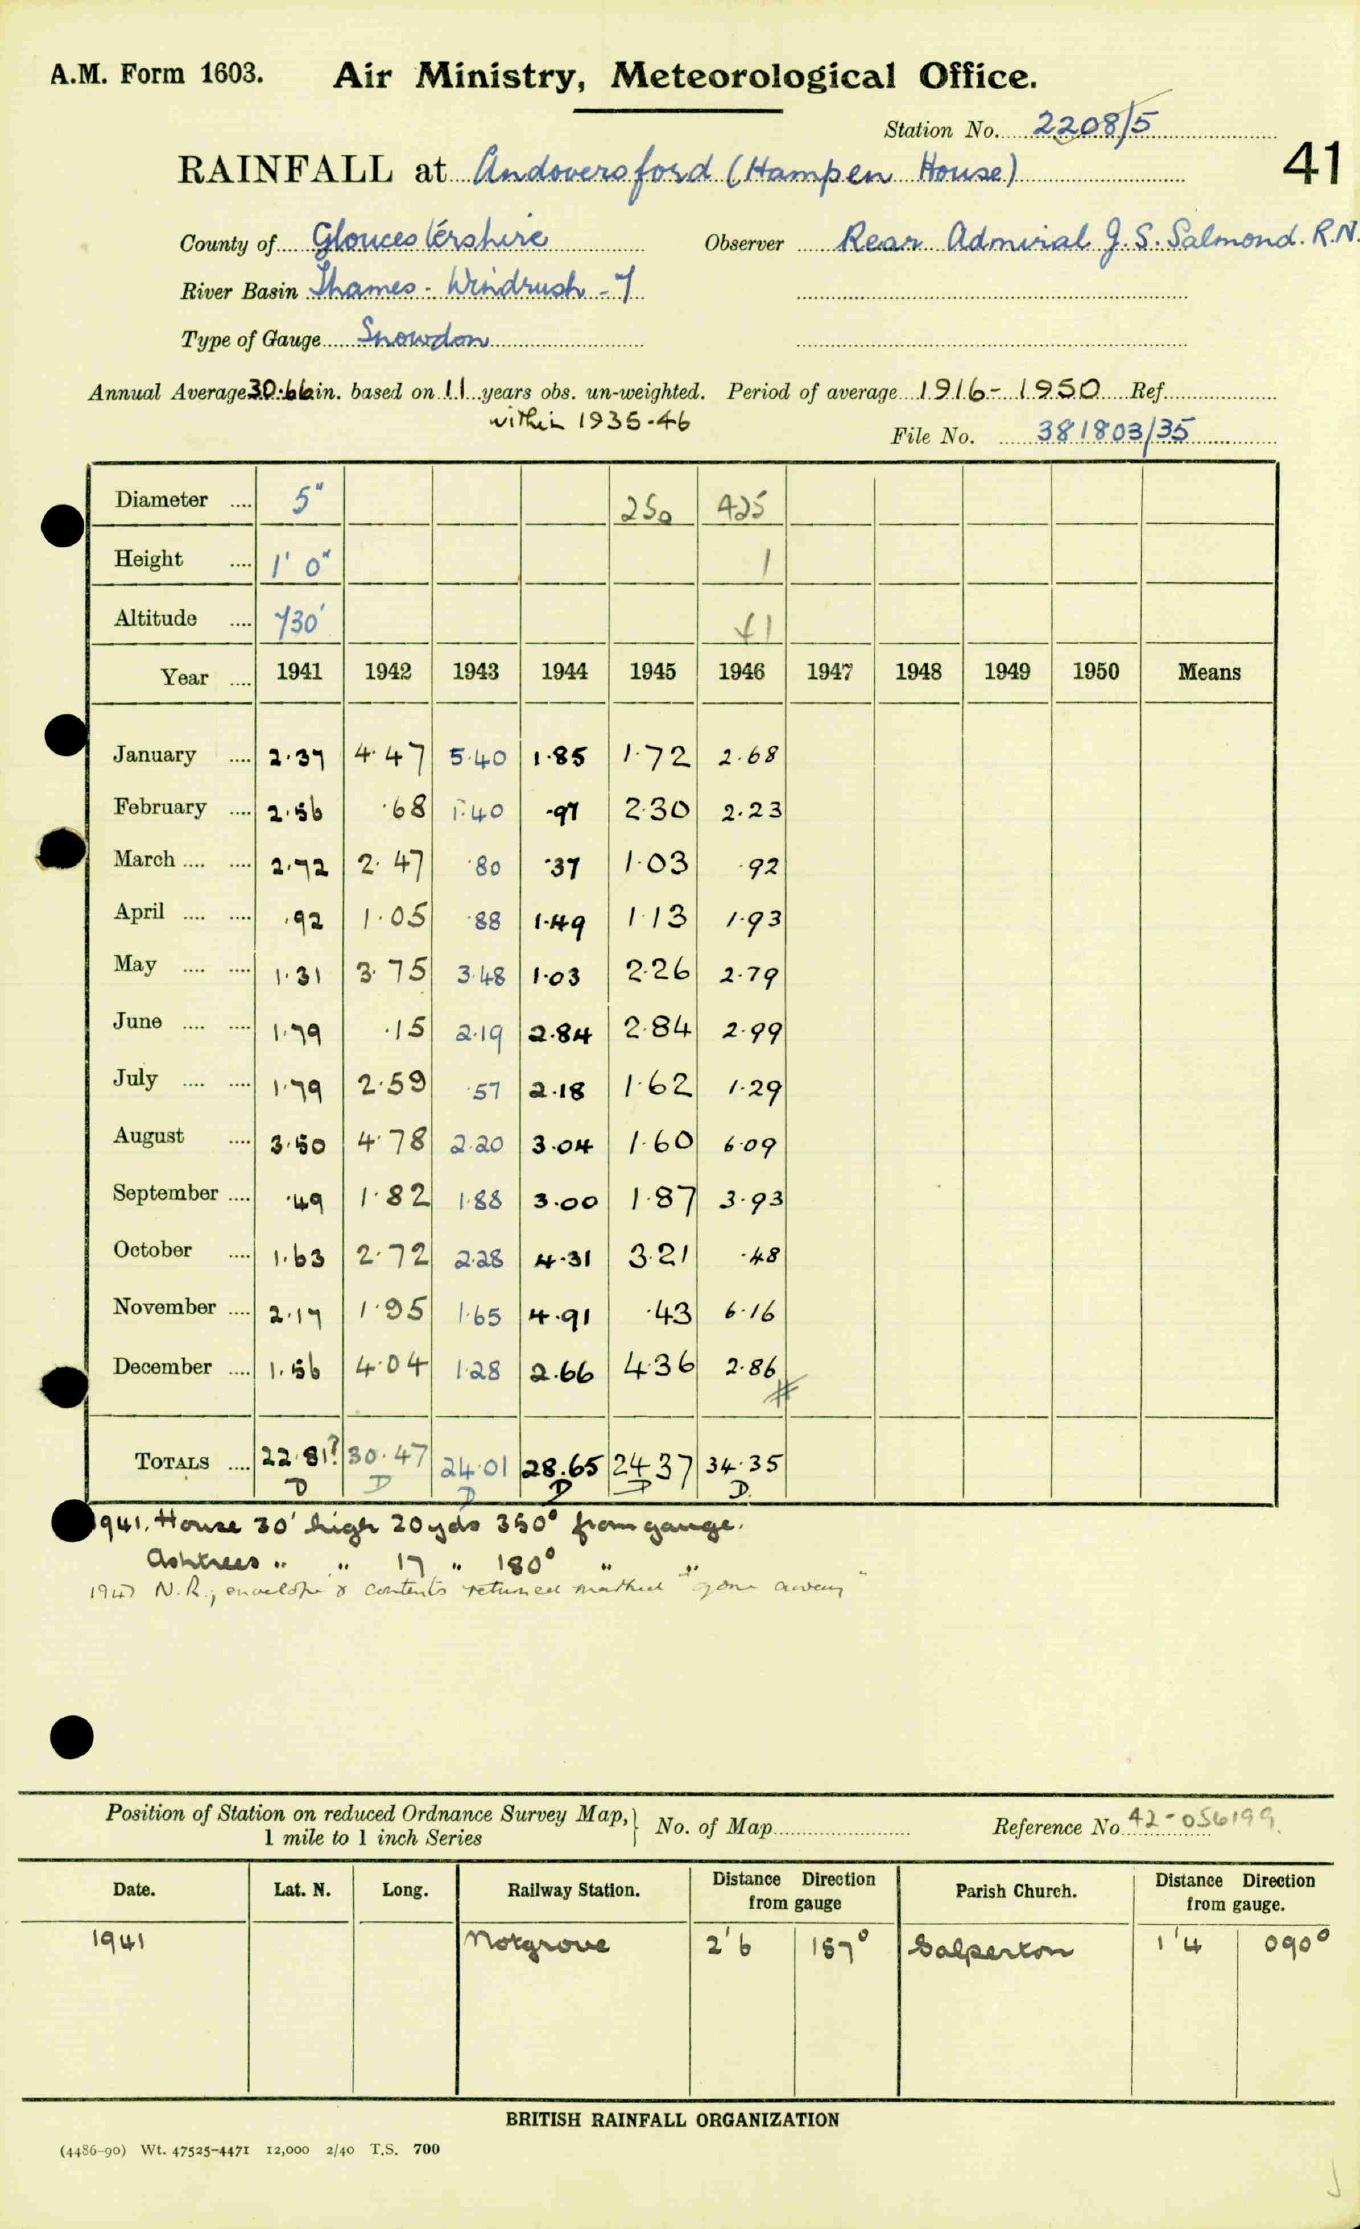 A.M. Form 1603. Air Ministry, Meteorological Office.
Station No. 2208/5
RAINFALL at Andoversford (Hampen House) 41
County of Gloucestershire Observer Rear Admiral J. S. Salmond. R.N.
River Basin Thames - Windrush - 7
Type of Gauge Snowdon
Annual Average 30.66 in. based on 11 years obs. un-weighted. Period of average 1916 - 1950 Ref.
within 1935-46
File No. 381803/35
Diameter .... 5" 250 425
Height .... 1' 0" 1
Altitude .... 730' 41
Year .... 1941 1942 1943 1944 1945 1946 1947 1948 1949 1950 Means
January .... 2.37 4.47 5.40 1.85 1.72 2.68
February .... 2.56 .68 1.40 .97 2.30 2.23
March .... .... 2.72 2.47 .80 .37 1.03 .92
April .... .... .92 1.05 .88 1.49 1.13 1.93
May .... .... 1.31 3.75 3.48 1.03 2.26 2.79
June .... .... 1.79 .15 2.19 2.84 2.84 2.99
July .... .... 1.79 2.59 .57 2.18 1.62 1.29
August .... 3.50 4.78 2.20 3.04 1.60 6.09
September .... .49 1.82 1.88 3.00 1.87 3.93
October .... 1.63 2.72 2.28 4.31 3.21 .48
November .... 2.17 1.95 1.65 4.91 .43 6.16
December .... 1.56 4.04 1.28 2.66 4.36 2.86
TOTALS .... 22.81? 30.47 24.01 28.65 24.37 34.35
D D D D D D
1941. House 30' high 20 yds 350° from gauge.
Ashtrees " " 17 " 180° " "
1947 N.R., envelope & contents returned marked "gone away"
Position of Station on reduced Ordnance Survey Map, 1 mile to 1 inch Series No. of Map Reference No. 42-056199
Date. Lat. N. Long. Railway Station. Distance Direction from gauge Parish Church. Distance Direction from gauge.
1941 Notgrove 2'6 157° Salperton 1'4 090°
BRITISH RAINFALL ORGANIZATION
(4486-90) Wt. 47525-4471 12,000 2/40 T.S. 700